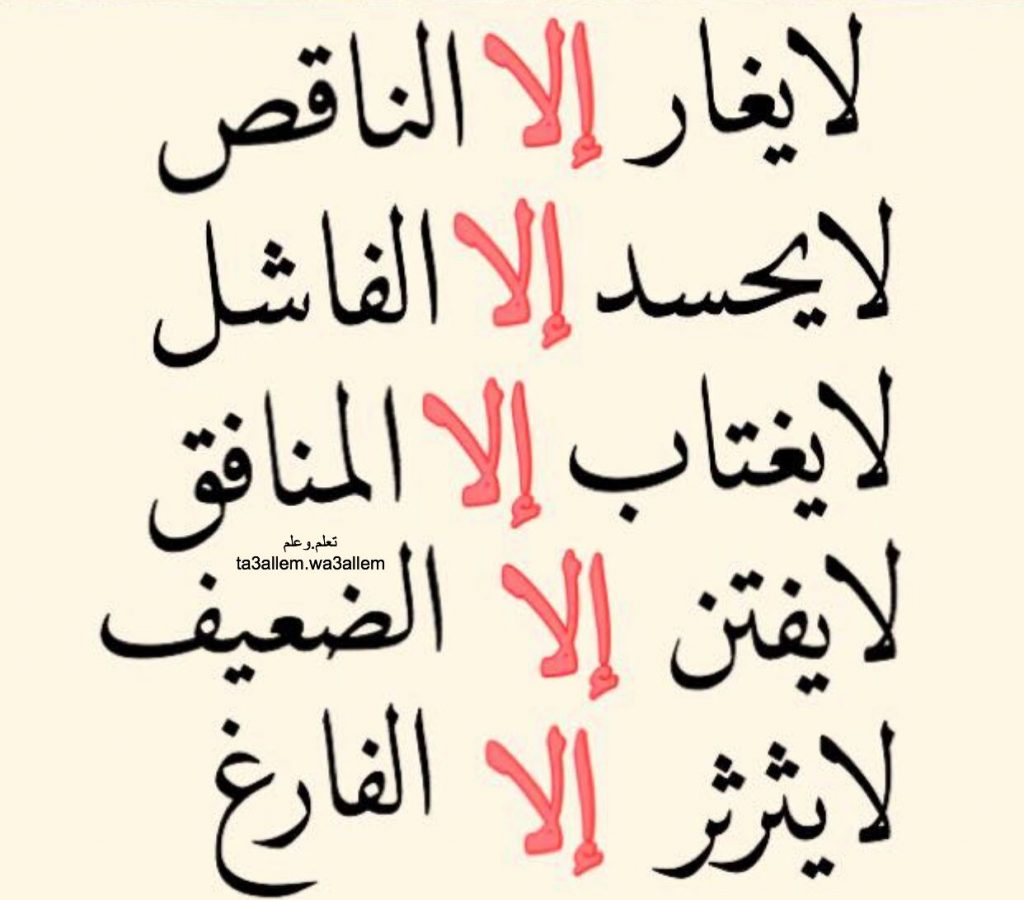 لا يغار إلا الناقص
لا يحسد إلا الفاشل
لا يغتاب إلا المنافق
تعلم.وعلم
ta3allem.wa3allem
لا يفتن إلا الضعيف
لا يثرثر إلا الفارغ